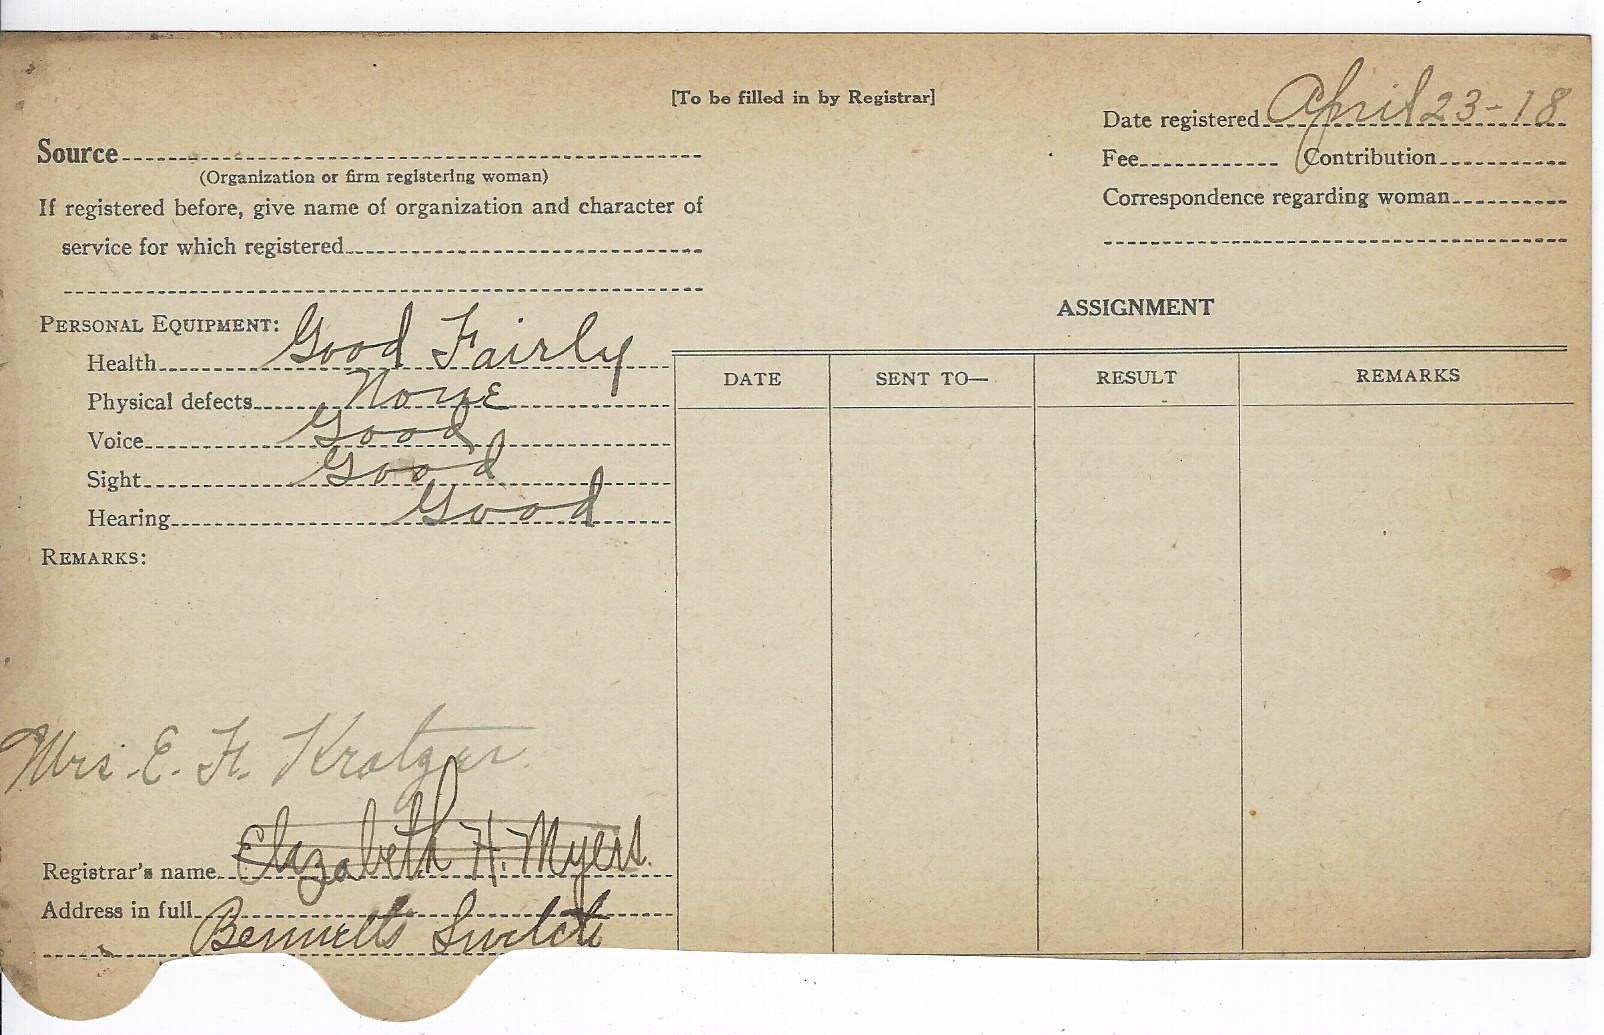 [To be filled in by Registrar]
Date registered April 23-18
Source
(Organization or firm registering woman)
Fee Contribution
If registered before, give name of organization and character of
service for which registered
Correspondence regarding woman
ASSIGNMENT
PERSONAL EQUIPMENT:
Health Good Fairly
Physical defects None
Voice Good
Sight Good
Hearing Good
DATE SENT TO— RESULT REMARKS
REMARKS:
Mrs. E. H. Kratzer
Registrar's name Elizabeth H. Myers.
Address in full
Bennetts Switch